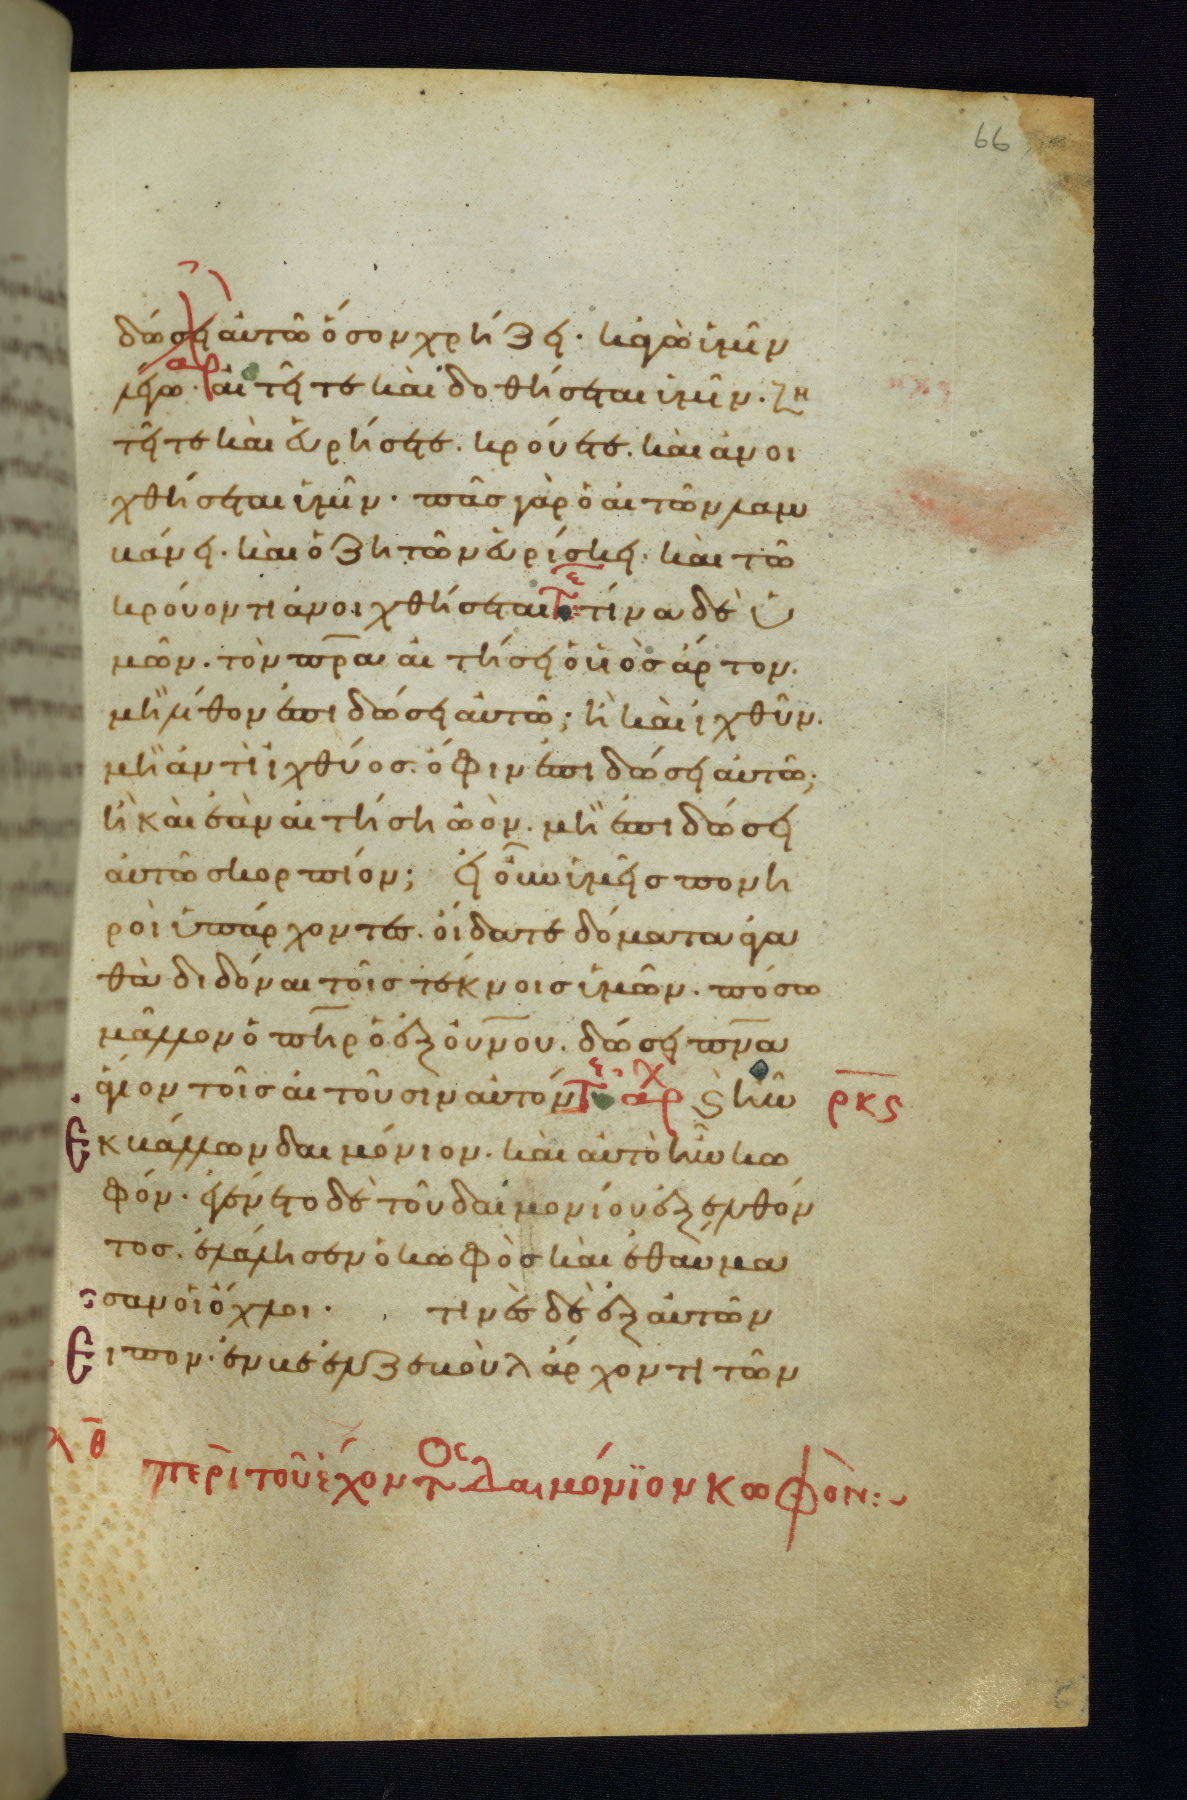 66
δώσει αυτῶ ὅσον χρήζει· κἀγὼ ὑμῖν
λέγω· αἰτεῖτε καὶ δοθήσεται ὑμῖν· ζη
τεῖτε καὶ εὑρήσετε. κρούετε. καὶ ἀνοι
χθήσεται ὑμῖν· πᾶσ γὰρ ὁ αἰτῶν λαμ
βάνει· καὶ ὁ ζητῶν εὑρίσκει· καὶ τῶ
κρούοντι ἀνοιχθήσεται τίνα δὲ ὑ
μῶν. τὸν πρ̅α αἰτήσει ὁ υἱὸσ ἄρτον.
μὴ λίθον ἐπιδώσει αὐτῶ; ἢ καὶ ἰχθῦν.
μὴ ἀντὶ ἰχθύοσ. ὄφιν ἐπιδώσει αὐτῶ;
ἢ καὶ ἐὰν αἰτήση ὠὸν. μὴ ἐπιδώσει
αὐτῶ σκορπίον; εἰ οὖν ὑμεῖσ πονη
ροὶ ὑπάρχοντες. οἴδατε δόματα ἀγα
θὰ διδόναι τοῖσ τέκνοισ ὑμῶν. πόσω
μᾶλλον ὁ πη̅ρ ὁ ἐξ ου̅νου. δώσει πν̅α
ἅγιον τοῖσ αἰτοῦσιν αὐτόν αρχ ϛ ἦν
ρκϛ
ἐκβάλλων δαιμόνιον. καὶ αὐτὸ ἦν κω
φόν· ἐγένετο δὲ τοῦ δαιμονίου ἐξελθόν
τοσ. ἐλάλησεν ὁ κωφὸσ καὶ ἐθαύμα
σαν οἱ ὄχλοι· τινὲσ δὲ ἐξ αὐτῶν
εἶπον· ἐν βεελζεβοὺλ ἄρχοντι τῶν
λθ̅
περὶ τοῦ ἔχοντος δαιμόνϊον κωφὸν:~